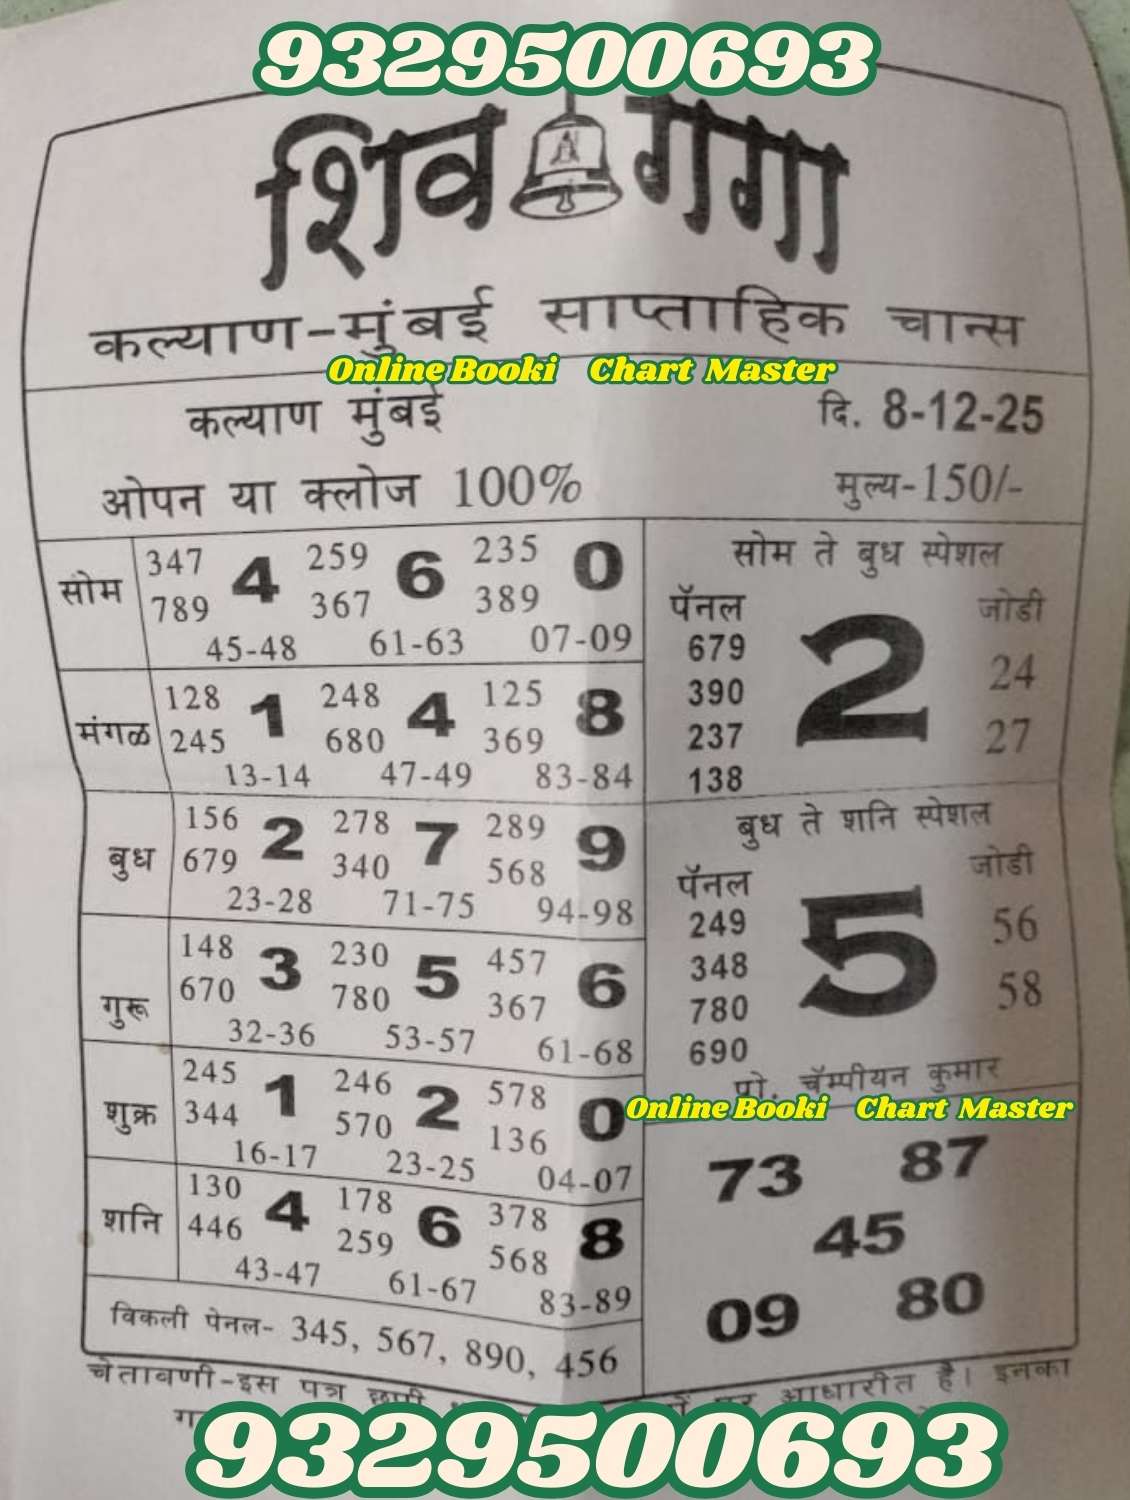 9329500693
शिव गंगा
कल्याण-मुंबई साप्ताहिक चान्स
Online Booki Chart Master
कल्याण मुंबई दि. 8-12-25
ओपन या क्लोज 100% मुल्य-150/-
सोम 347 4 259 6 235 0
789 367 389
45-48 61-63 07-09
मंगळ 128 1 248 4 125 8
245 680 369
13-14 47-49 83-84
बुध 156 2 278 7 289 9
679 340 568
23-28 71-75 94-98
गुरू 148 3 230 5 457 6
670 780 367
32-36 53-57 61-68
शुक्र 245 1 246 2 578 0
344 570 136
16-17 23-25 04-07
शनि 130 4 178 6 378 8
446 259 568
43-47 61-67 83-89
विकली पेनल- 345, 567, 890, 456
सोम ते बुध स्पेशल
पॅनल 2 जोडी
679
390 24
237 27
138
बुध ते शनि स्पेशल
पॅनल 5 जोडी
249 56
348
780 58
690
प्रो. चॅम्पीयन कुमार
Online Booki Chart Master
73 87
45
09 80
चेतावणी-इस पत्र आधारीत है। इनका
9329500693